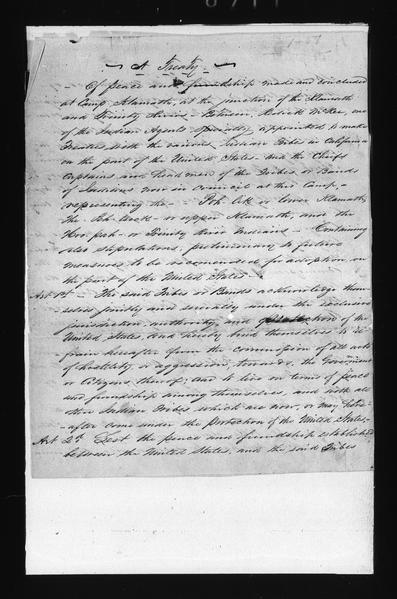 A Treaty
Of peace and friendship made and concluded
at Camp Klamath, at the junction of the Klamath
and Trinity Rivers - Between, Redick McKee, one
of the Indian Agents specially appointed to make
Treaties with the various Indian Tribes in California
on the part of the United States - and the Chiefs
Captains and Head men of the Tribes or Bands
of Indians now in council at this Camp -
representing the - Poh lik or lower Klamath,
The Peh tuck - or upper Klamath, and the
Hoo-pah - or Trinity river Indians - Containing
also stipulations, preliminary to future
measures to be recommended for adoption on
the part of the United States -
Art 1st - The said Tribes or Bands acknowledge them-
selves jointly and severally under the exclusive
jurisdiction, authority, and protection of the
United States, and hereby bind themselves to re-
frain hereafter from the commission of all acts
of hostility or aggression towards, the Government
or Citizens thereof; and to live on terms of peace
and friendship among themselves, and with all
other Indian Tribes which are now, or may here-
-after come under the protection of the United States,-
Art 2d Lest the peace and friendship established
between the United States, and the said Tribes